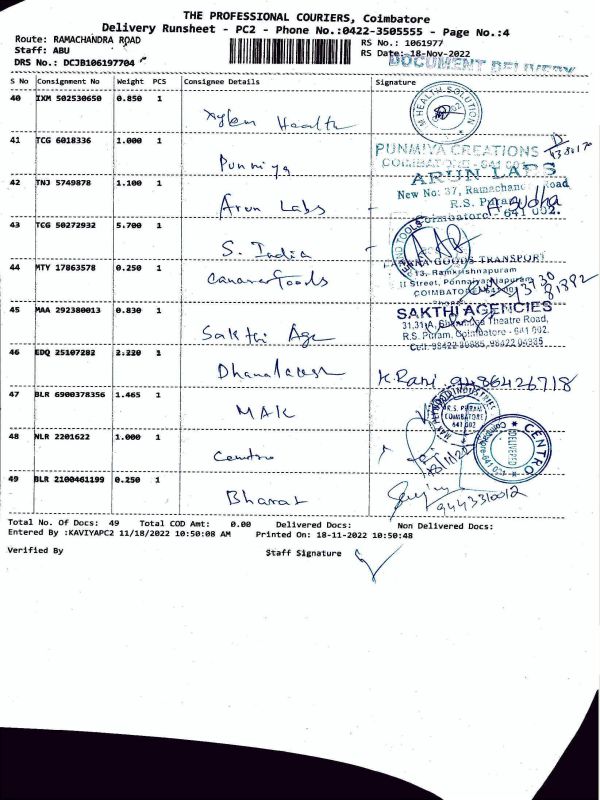 THE PROFESSIONAL COURIERS, Coimbatore
Delivery Runsheet - PC2 - Phone No.:0422-3505555 - Page No.:4
Route: RAMACHANDRA ROAD
RS No.: 1061977
Staff: ABU
RS Date: 18-Nov-2022
DRS No.: DCJB106197704
DOCUMENT DELIVERY
S No Consignment No Weight PCS Consignee Details Signature
40 IXM 502530650 0.850 1
Xylem Health
M HEALTH SOLUTION
41 TCG 6018336 1.000 1
Punmiya
PUNMIYA CREATIONS
COIMBATORE - 641 002
42 TNJ 5749878 1.100 1
Arun Labs
ARUN LABS
New No: 37, Ramachandra Road
R.S. Puram
Coimbatore 641 002.
A. Sudha
43 TCG 50272932 5.700 1
S. India
AND TOOLS
44 MTY 17863578 0.250 1
Canara Goods
CANARA GOODS TRANSPORT
13, Ramkrishnapuram
II Street, Ponnaiyarajapuram
COIMBATORE - 641 001
45 MAA 292380013 0.830 1
Sakthi Age
SAKTHI AGENCIES
31,31 A, Theatre Road,
R.S. Puram, Coimbatore - 641 002.
46 EDQ 25107282 2.220 1
K. Rani 9486426718
47 BLR 6900378356 1.465 1
MAK
R.S. PURAM
COIMBATORE
641 002
48 NLR 2201622 1.000 1
Centro
18/11/22
CENTRO
DELIVERED
49 BLR 2100461199 0.250 1
Bharat
9443310012
Total No. Of Docs: 49 Total COD Amt: 0.00 Delivered Docs: Non Delivered Docs:
Entered By :KAVIYAPC2 11/18/2022 10:50:08 AM Printed On: 18-11-2022 10:50:48
Verified By Staff Signature